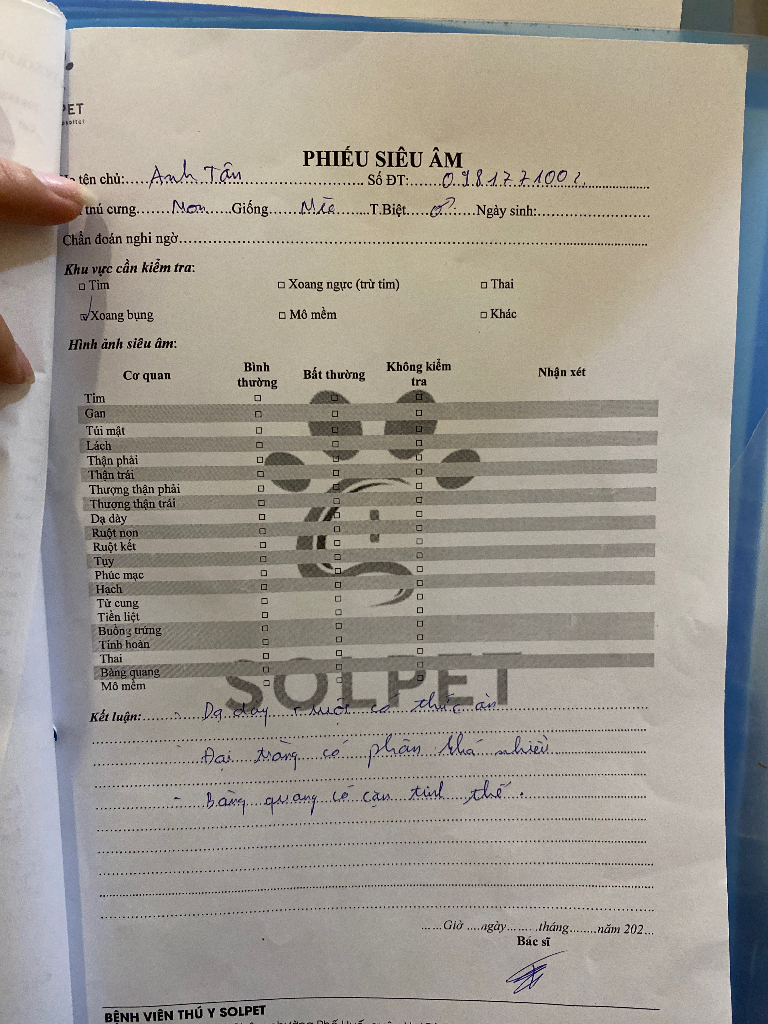 PET
PHIẾU SIÊU ÂM
tên chủ: Anh Tân Số ĐT: 0981771002
thú cưng Non Giống Mèo T.Biệt ♂ Ngày sinh:
Chẩn đoán nghi ngờ
Khu vực cần kiểm tra:
Tim Xoang ngực (trừ tim) Thai
Xoang bụng Mô mềm Khác
Hình ảnh siêu âm:
Cơ quan Bình thường Bất thường Không kiểm tra Nhận xét
Tim
Gan
Túi mật
Lách
Thận phải
Thận trái
Thượng thận phải
Thượng thận trái
Dạ dày
Ruột non
Ruột kết
Tụy
Phúc mạc
Hạch
Tử cung
Tiền liệt
Buồng trứng
Tinh hoàn
Thai
Bàng quang
Mô mềm
SOLPET
Kết luận: - Dạ dày + ruột có thức ăn
- Đại tràng có phân khá nhiều
- Bàng quang có cặn tinh thể.
Giờ ngày tháng năm 202
Bác sĩ
BỆNH VIỆN THÚ Y SOLPET